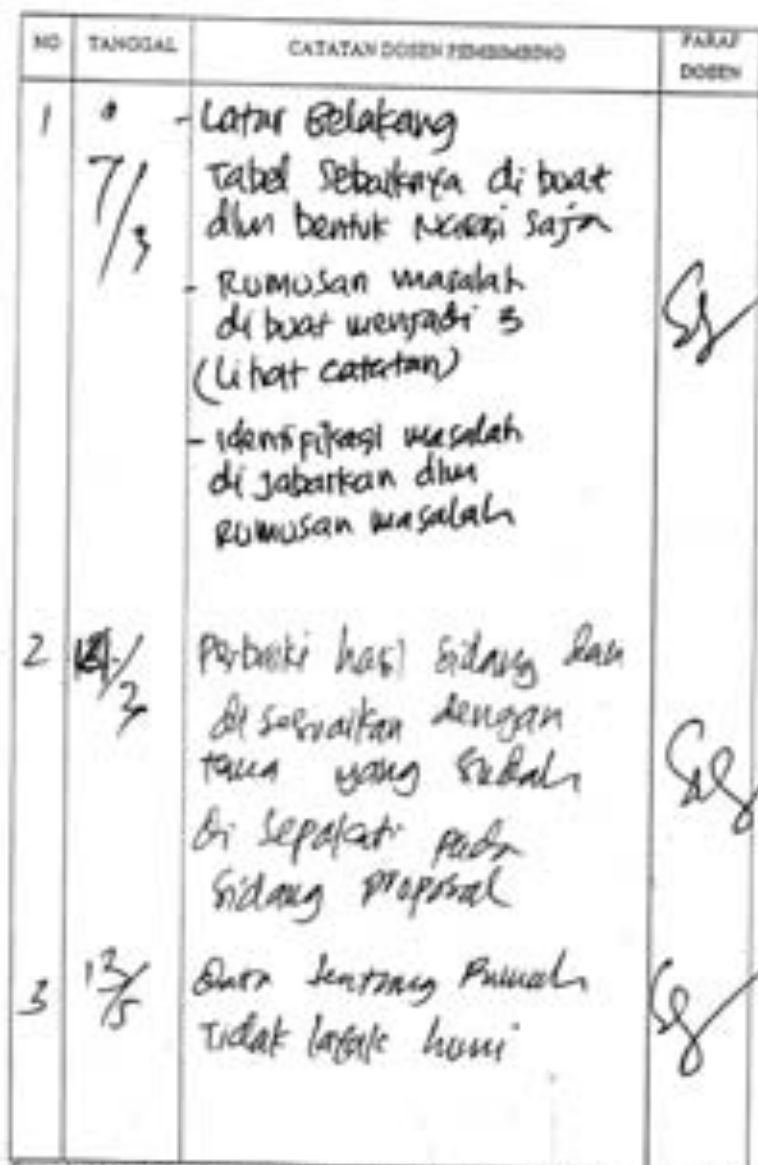 NO TANGGAL CATATAN DOSEN PEMBIMBING PARAF DOSEN
1 7/3 - Latar Belakang
Tabel Sebaiknya di buat
dlm bentuk Narasi Saja
- Rumusan masalah
di buat menjadi 3
(Lihat catatan)
- identifikasi masalah
di jabarkan dlm
Rumusan masalah
2 /3 Perbaiki hasil Sidang dan
di sesuaikan dengan
tema yang sudah
di sepakati pada
Sidang proposal
3 13/5 Data tentang Rumah
Tidak layak huni